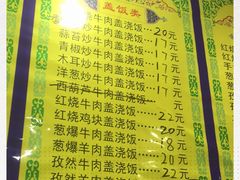 盖饭类
炒牛肉盖浇饭…20元
蒜苔炒牛肉盖浇饭…17元
青椒炒牛肉盖浇饭…17元
木耳炒牛肉盖浇饭…17元
洋葱炒牛肉盖浇饭…17元
西葫芦牛肉盖浇饭
红烧牛肉盖浇饭…22元
红烧鸡块盖浇饭…20元
葱爆牛肉盖浇饭…18元
葱爆羊肉盖浇饭…20元
孜然牛肉盖浇饭…22元
孜然羊肉盖浇饭
红烧
红
手
葱
葱
孜
孜